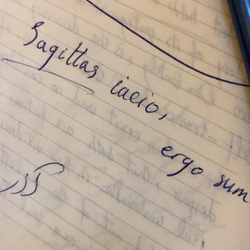 Sagittas iacio,
ergo sum